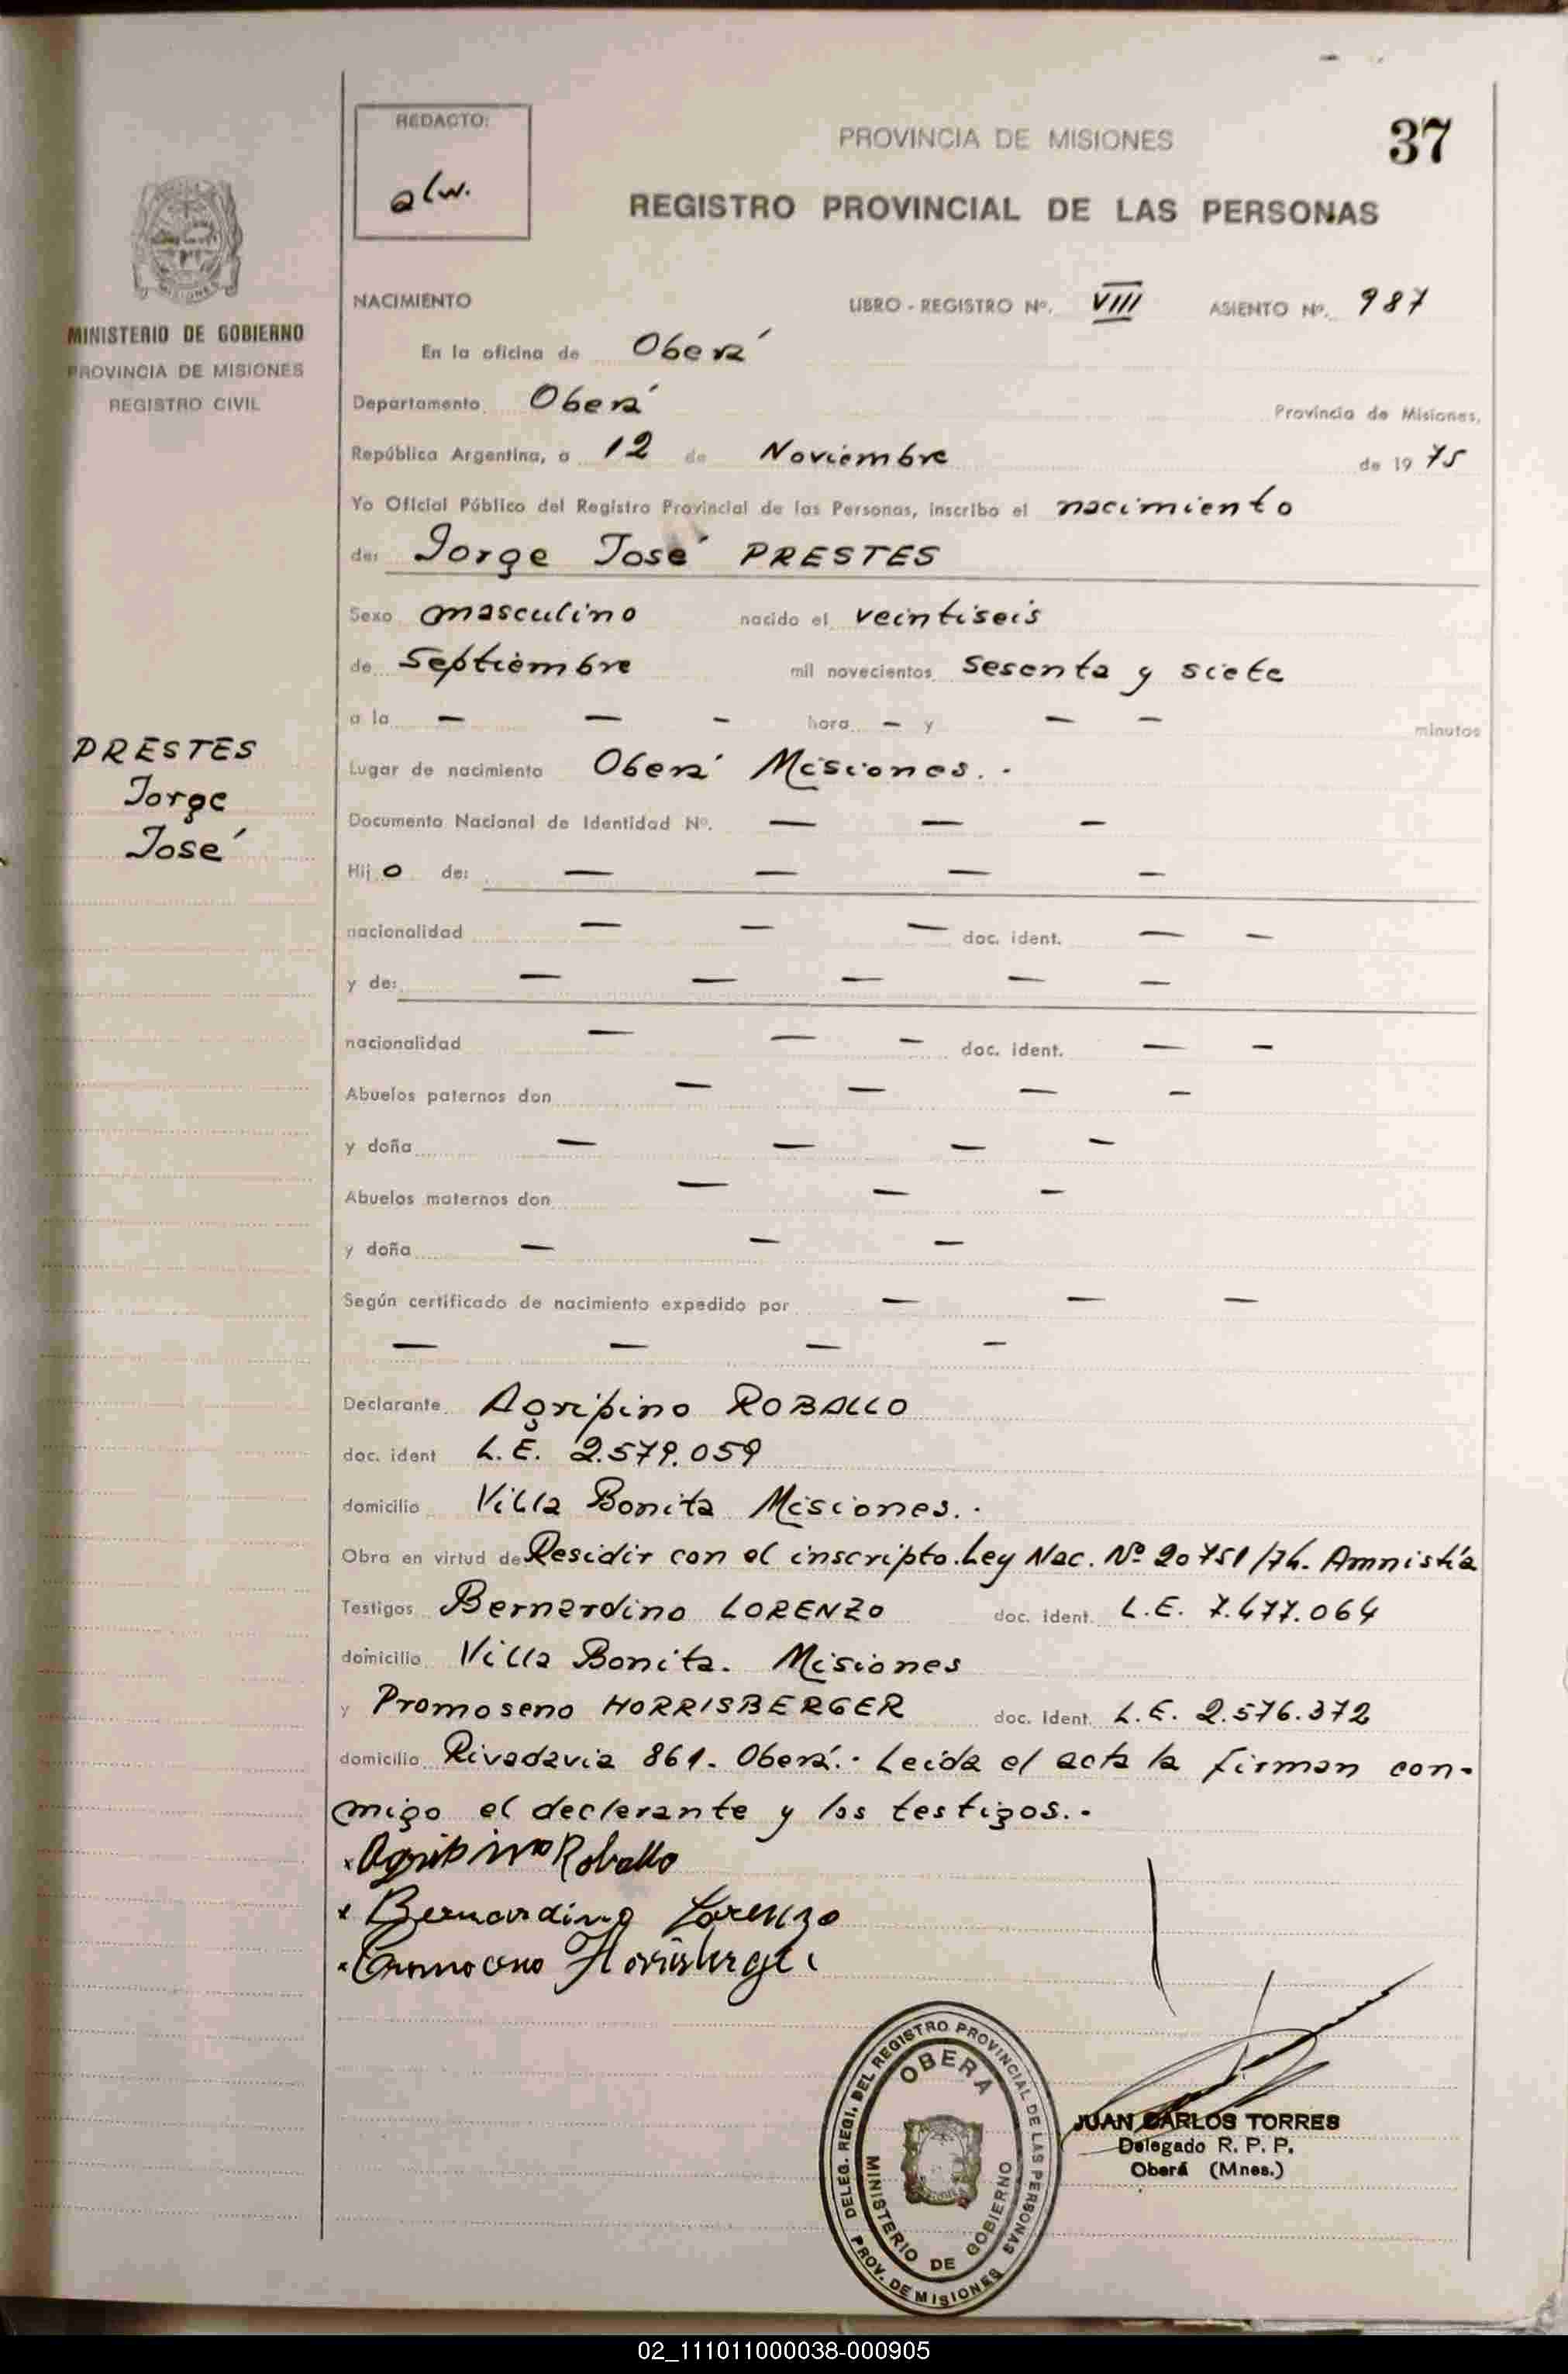 37
REDACTO:
alw.
PROVINCIA DE MISIONES
REGISTRO PROVINCIAL DE LAS PERSONAS
MISIONES
MINISTERIO DE GOBIERNO
PROVINCIA DE MISIONES
REGISTRO CIVIL
NACIMIENTO LIBRO - REGISTRO Nº. VIII ASIENTO Nº. 987
En la oficina de Oberá
Departamento Oberá Provincia de Misiones,
República Argentina, a 12 de Noviembre de 1975
Yo Oficial Público del Registro Provincial de las Personas, inscribo el nacimiento
de: Jorge José PRESTES
Sexo masculino nacido el veintiseis
de Septiembre mil novecientos sesenta y siete
a la — — — hora — y — — minutos
PRESTES
Jorge
José
Lugar de nacimiento Oberá Misiones. -
Documento Nacional de Identidad Nº. — — —
Hijo de: — — — —
nacionalidad — — — doc. ident. — —
y de: — — — — —
nacionalidad — — — doc. ident. — —
Abuelos paternos don — — — —
y doña — — — —
Abuelos maternos don — — —
y doña — — —
Según certificado de nacimiento expedido por — — —
— — — —
Declarante Agripino ROBALLO
doc. ident L.E. 2.579.059
domicilio Villa Bonita Misiones. -
Obra en virtud de Residir con el inscripto. Ley Nac. Nº 20751/74. Amnistía
Testigos Bernardino LORENZO doc. ident. L.E. 7.477.064
domicilio Villa Bonita. Misiones
y Promoseno HORRISBERGER doc. ident. L.E. 2.576.372
domicilio Rivadavia 861. Oberá. - Leída el acta la firman con-
migo el declarante y los testigos. -
x Agripino Roballo
x Bernardino Lorenzo
DELEG. REGI. DEL REGISTRO PROVINCIAL DE LAS PERSONAS
OBERA
MINISTERIO DE GOBIERNO
PROV. DE MISIONES
JUAN CARLOS TORRES
Delegado R. P. P.
Oberá (Mnes.)
02_111011000038-000905